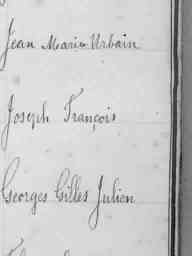 Jean Marie Urbain
Joseph François
Georges Gilles Julien